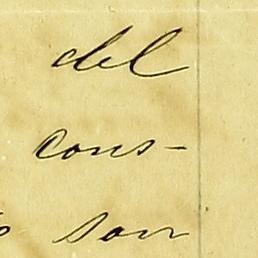 del
cons-
son